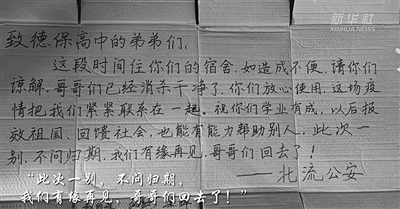 新华社
XINHUA NEWS
致德保高中的弟弟们:
这段时间住你们的宿舍,如造成不便,请你们
谅解,哥哥们已经消杀干净了,你们放心使用,这场疫
情把我们紧紧联系在一起。祝你们学业有成,以后报
效祖国,回馈社会,也能有能力帮助别人,此次一
别,不问归期,我们有缘再见,哥哥们回去了!
——北流公安
“此次一别,不问归期,
我们有缘再见,哥哥们回去了!”